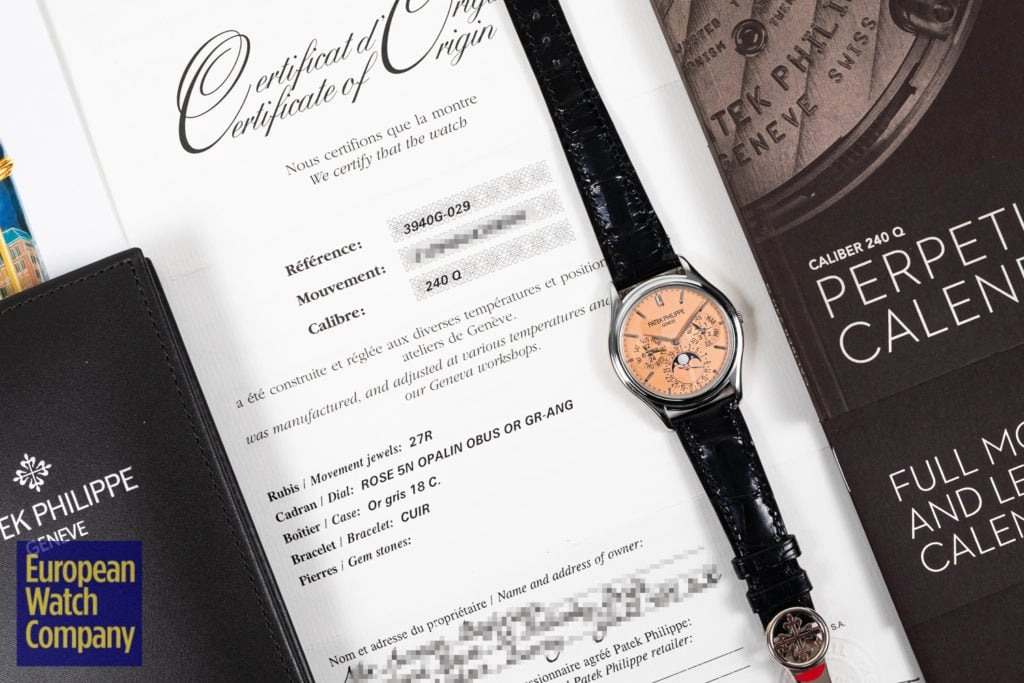 Certificat d'Orig
Certificate of Origin
Nous certifions que la montre
We certify that the watch
Référence: 3940G-029
Mouvement:
Calibre: 240 Q
a été construite et réglée aux diverses températures et position
ateliers de Genève.
was manufactured, and adjusted at various temperatures and
our Geneva workshops.
Rubis / Movement jewels: 27R
Cadran / Dial: ROSE 5N OPALIN OBUS OR GR-ANG
Boîtier / Case: Or gris 18 C.
Bracelet / Bracelet: CUIR
Pierres / Gem stones:
Nom et adresse du propriétaire / Name and address of owner:
ssionnaire agréé Patek Philippe:
Patek Philippe retailer:
S.A.
PATEK PHILIPPE
GENEVE
TEK PHILIPPE
GENEVE
European
Watch
Company
TEK PHILIP
GENEVE SWISS
CALIBER 240 Q
PERPETU
CALEN
FULL MO
AND LE
CALEN